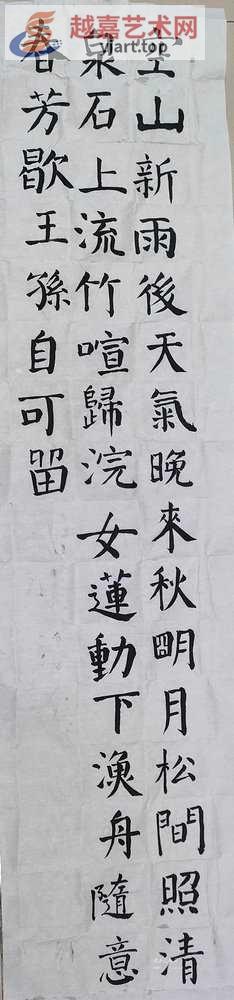 越嘉艺术网
yjart.top
空山新雨後天氣晚來秋明月松間照清
泉石上流竹喧歸浣女蓮動下漁舟隨意
春芳歇王孫自可留